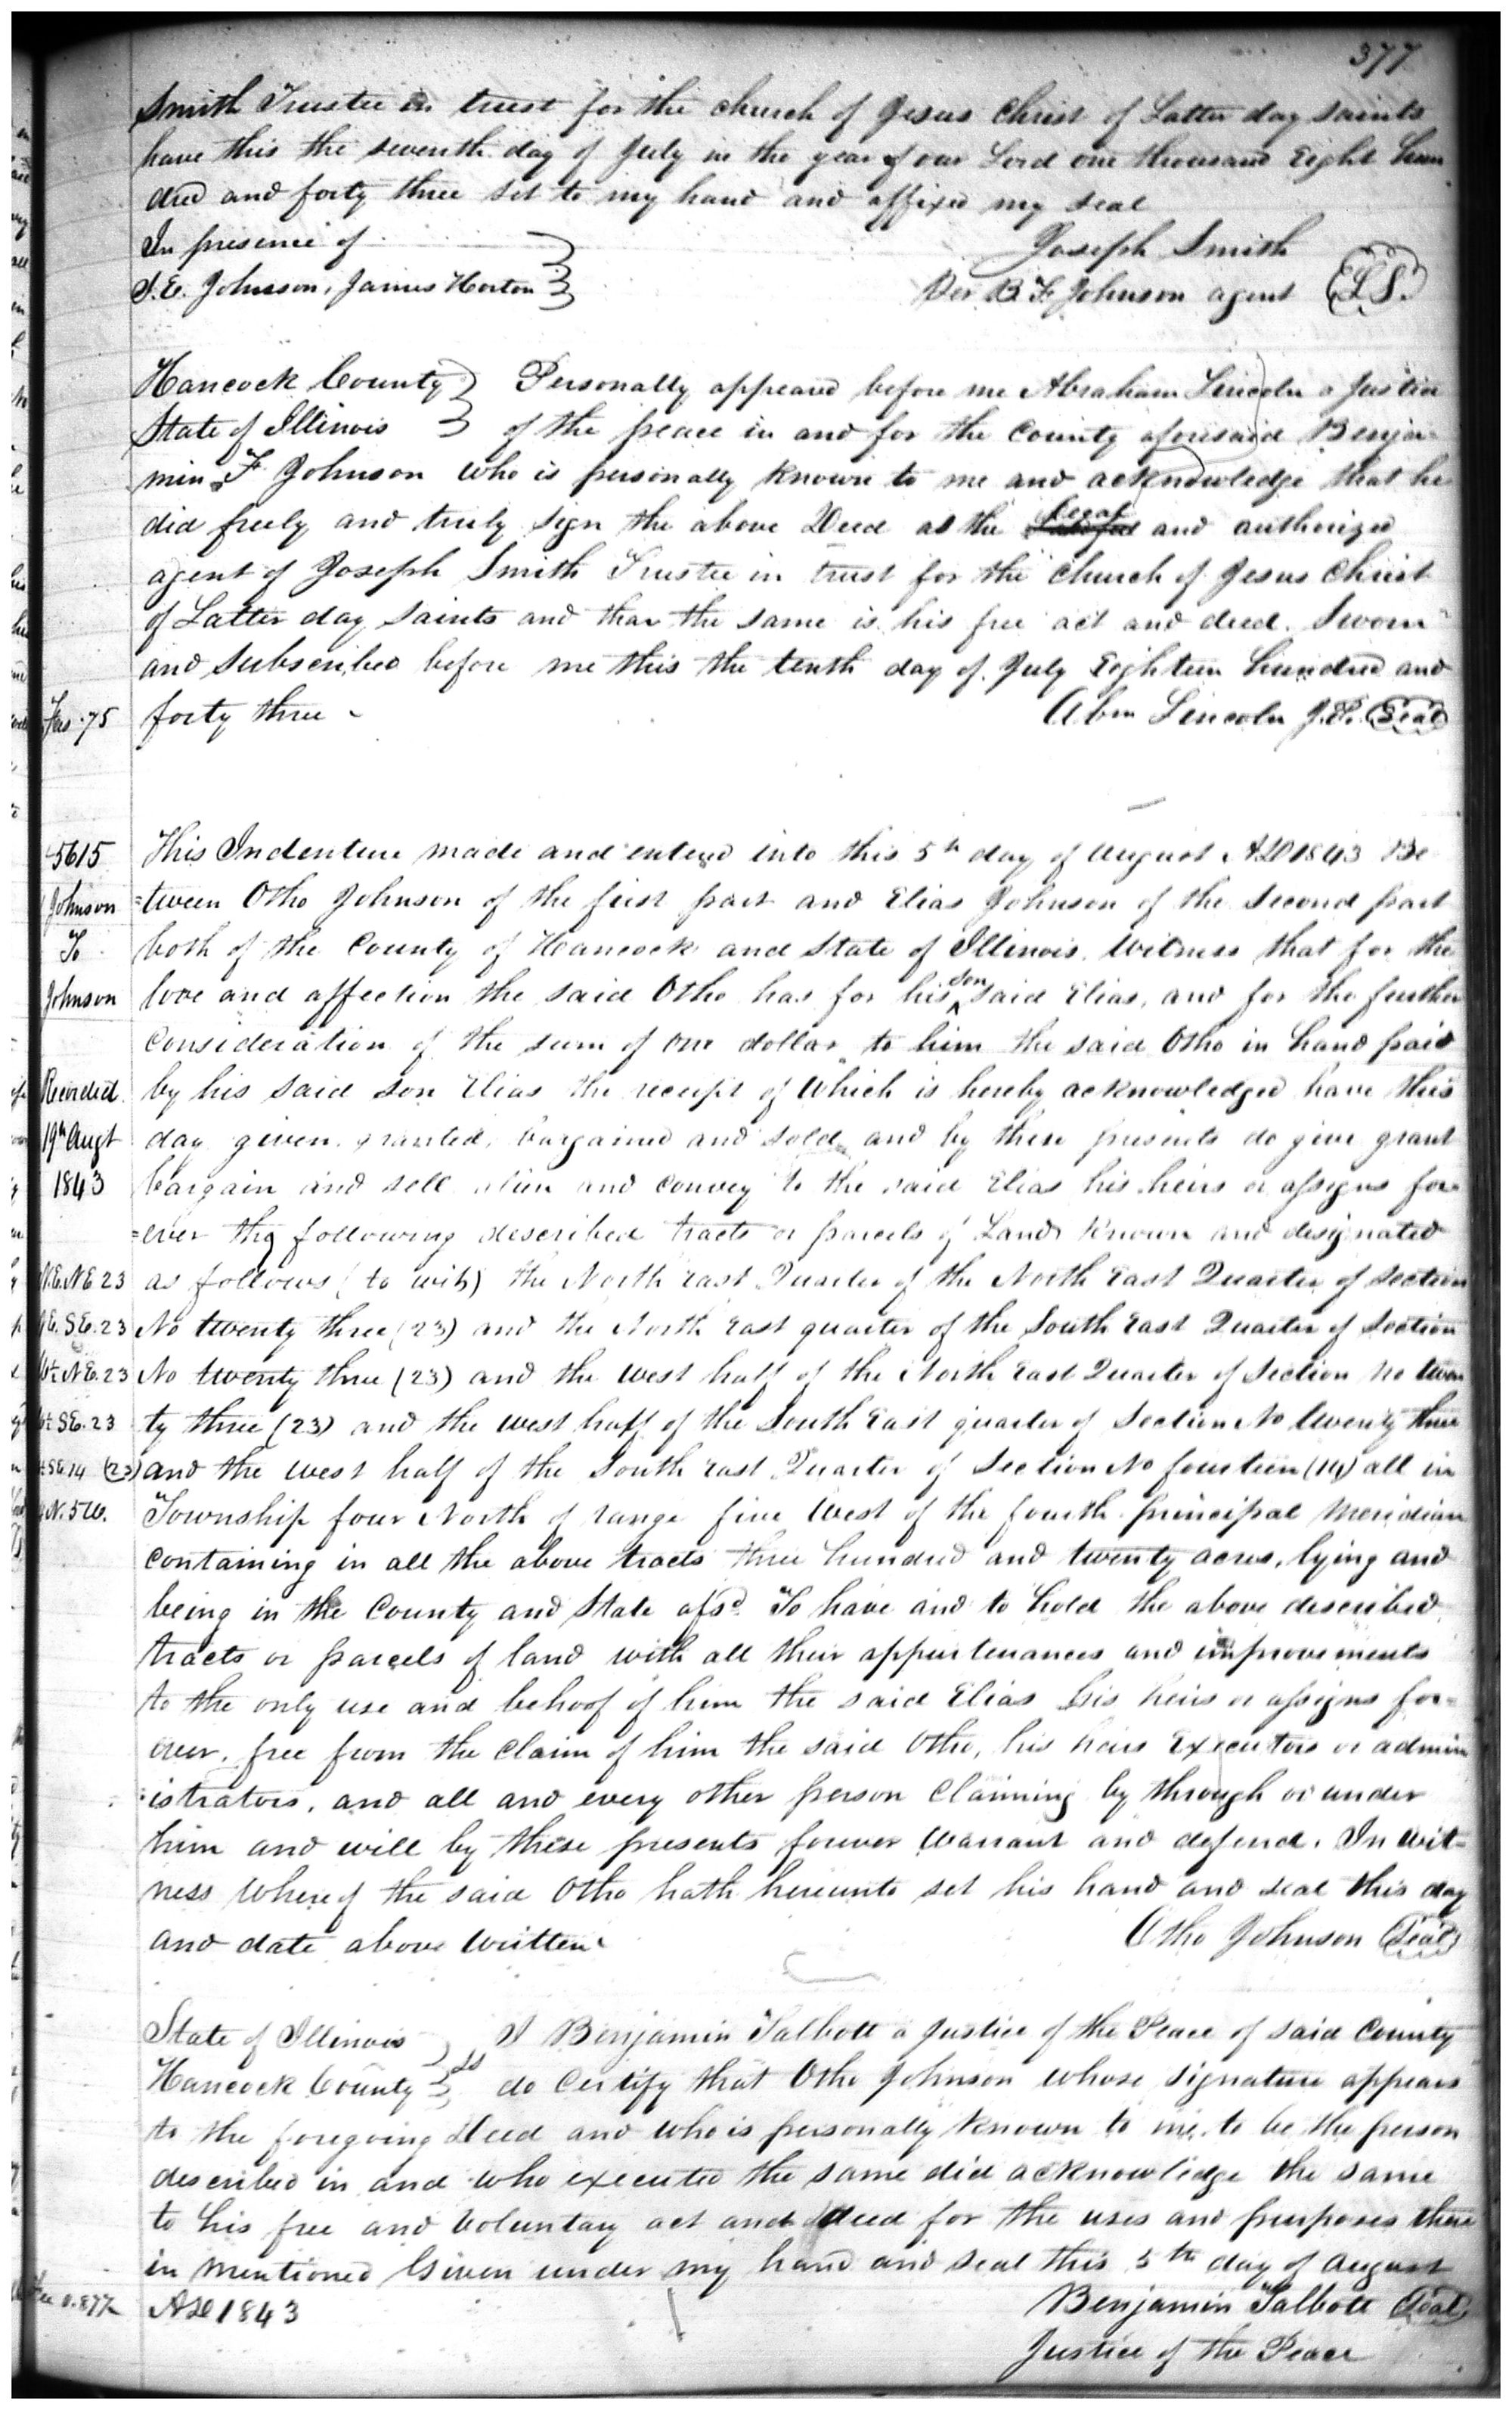 377
Smith Trustee in trust for the church of Jesus Christ of Latter day saints
have this the seventh day of July in the year of our Lord one thousand Eight hun
dred and forty three set to my hand and affixed my seal
In presence of
J. E. Johnson, James Horton
Joseph Smith
Per B F Johnson agent (L S.)
Hancock County } Personally appeared before me Abraham Lincoln a Justice
State of Illinois } of the peace in and for the County aforesaid Benja-
min F Johnson who is personally known to me and acknowledge that he
did freely and truly sign the above Deed as the legal and authorized
agent of Joseph Smith Trustee in trust for the church of Jesus Christ
of Latter day saints and that the same is his free act and deed. Sworn
and subscribed before me this the tenth day of July Eighteen hundred and
Fees .75 forty three - Abm Lincoln J.P. (Seal)
5615 This Indenture made and entered into this 5th day of August AD 1843 Be
Johnson =tween Otho Johnson of the first part and Elias Johnson of the second part
To both of the County of Hancock and State of Illinois. Witness that for the
Johnson love and affection the said Otho has for his son said Elias, and for the further
consideration of the sum of one dollar to him the said Otho in hand paid
Recorded by his said son Elias the receipt of which is hereby acknowledged have this
19th Augt day given, granted, bargained and sold, and by these presents do give grant
1843 bargain and sell alien and convey to the said Elias his heirs or assigns for
=ever the following described tracts or parcels of Land known and designated
N.E. NE 23 as follows (to wit) the North East Quarter of the North East Quarter of section
N.E. S.E. 23 No twenty three (23) and the North East quarter of the South East Quarter of section
W½ N.E. 23 No twenty three (23) and the west half of the North East Quarter of section No twen
W½ SE. 23 ty three (23) and the west half of the South East quarter of Section No twenty three
SE 14 (23) and the west half of the South East Quarter of Section No fourteen (14) all in
4 N. 5 W. Township four North of range five West of the fourth principal meridian
containing in all the above tracts three hundred and twenty acres, lying and
being in the County and State afsd. To have and to hold the above described
tracts or parcels of land with all their appurtenances and improvements
to the only use and behoof of him the said Elias his heirs or assigns for-
ever, free from the claim of him the said Otho, his heirs Executors or admin
=istrators, and all and every other person claiming by through or under
him and will by these presents forever warrant and defend. In wit-
ness whereof the said Otho hath hereunto set his hand and seal this day
and date above written Otho Johnson (Seal)
State of Illinois } ss I Benjamin Talbott a Justice of the Peace of said County
Hancock County } do certify that Otho Johnson whose signature appears
to the foregoing Deed and who is personally known to me, to be the person
described in and who executed the same did acknowledge the same
to his free and voluntary act and deed for the uses and purposes there
in mentioned Given under my hand and seal this 5th day of August
AD 1843 Benjamin Talbott (Seal)
Justice of the Peace